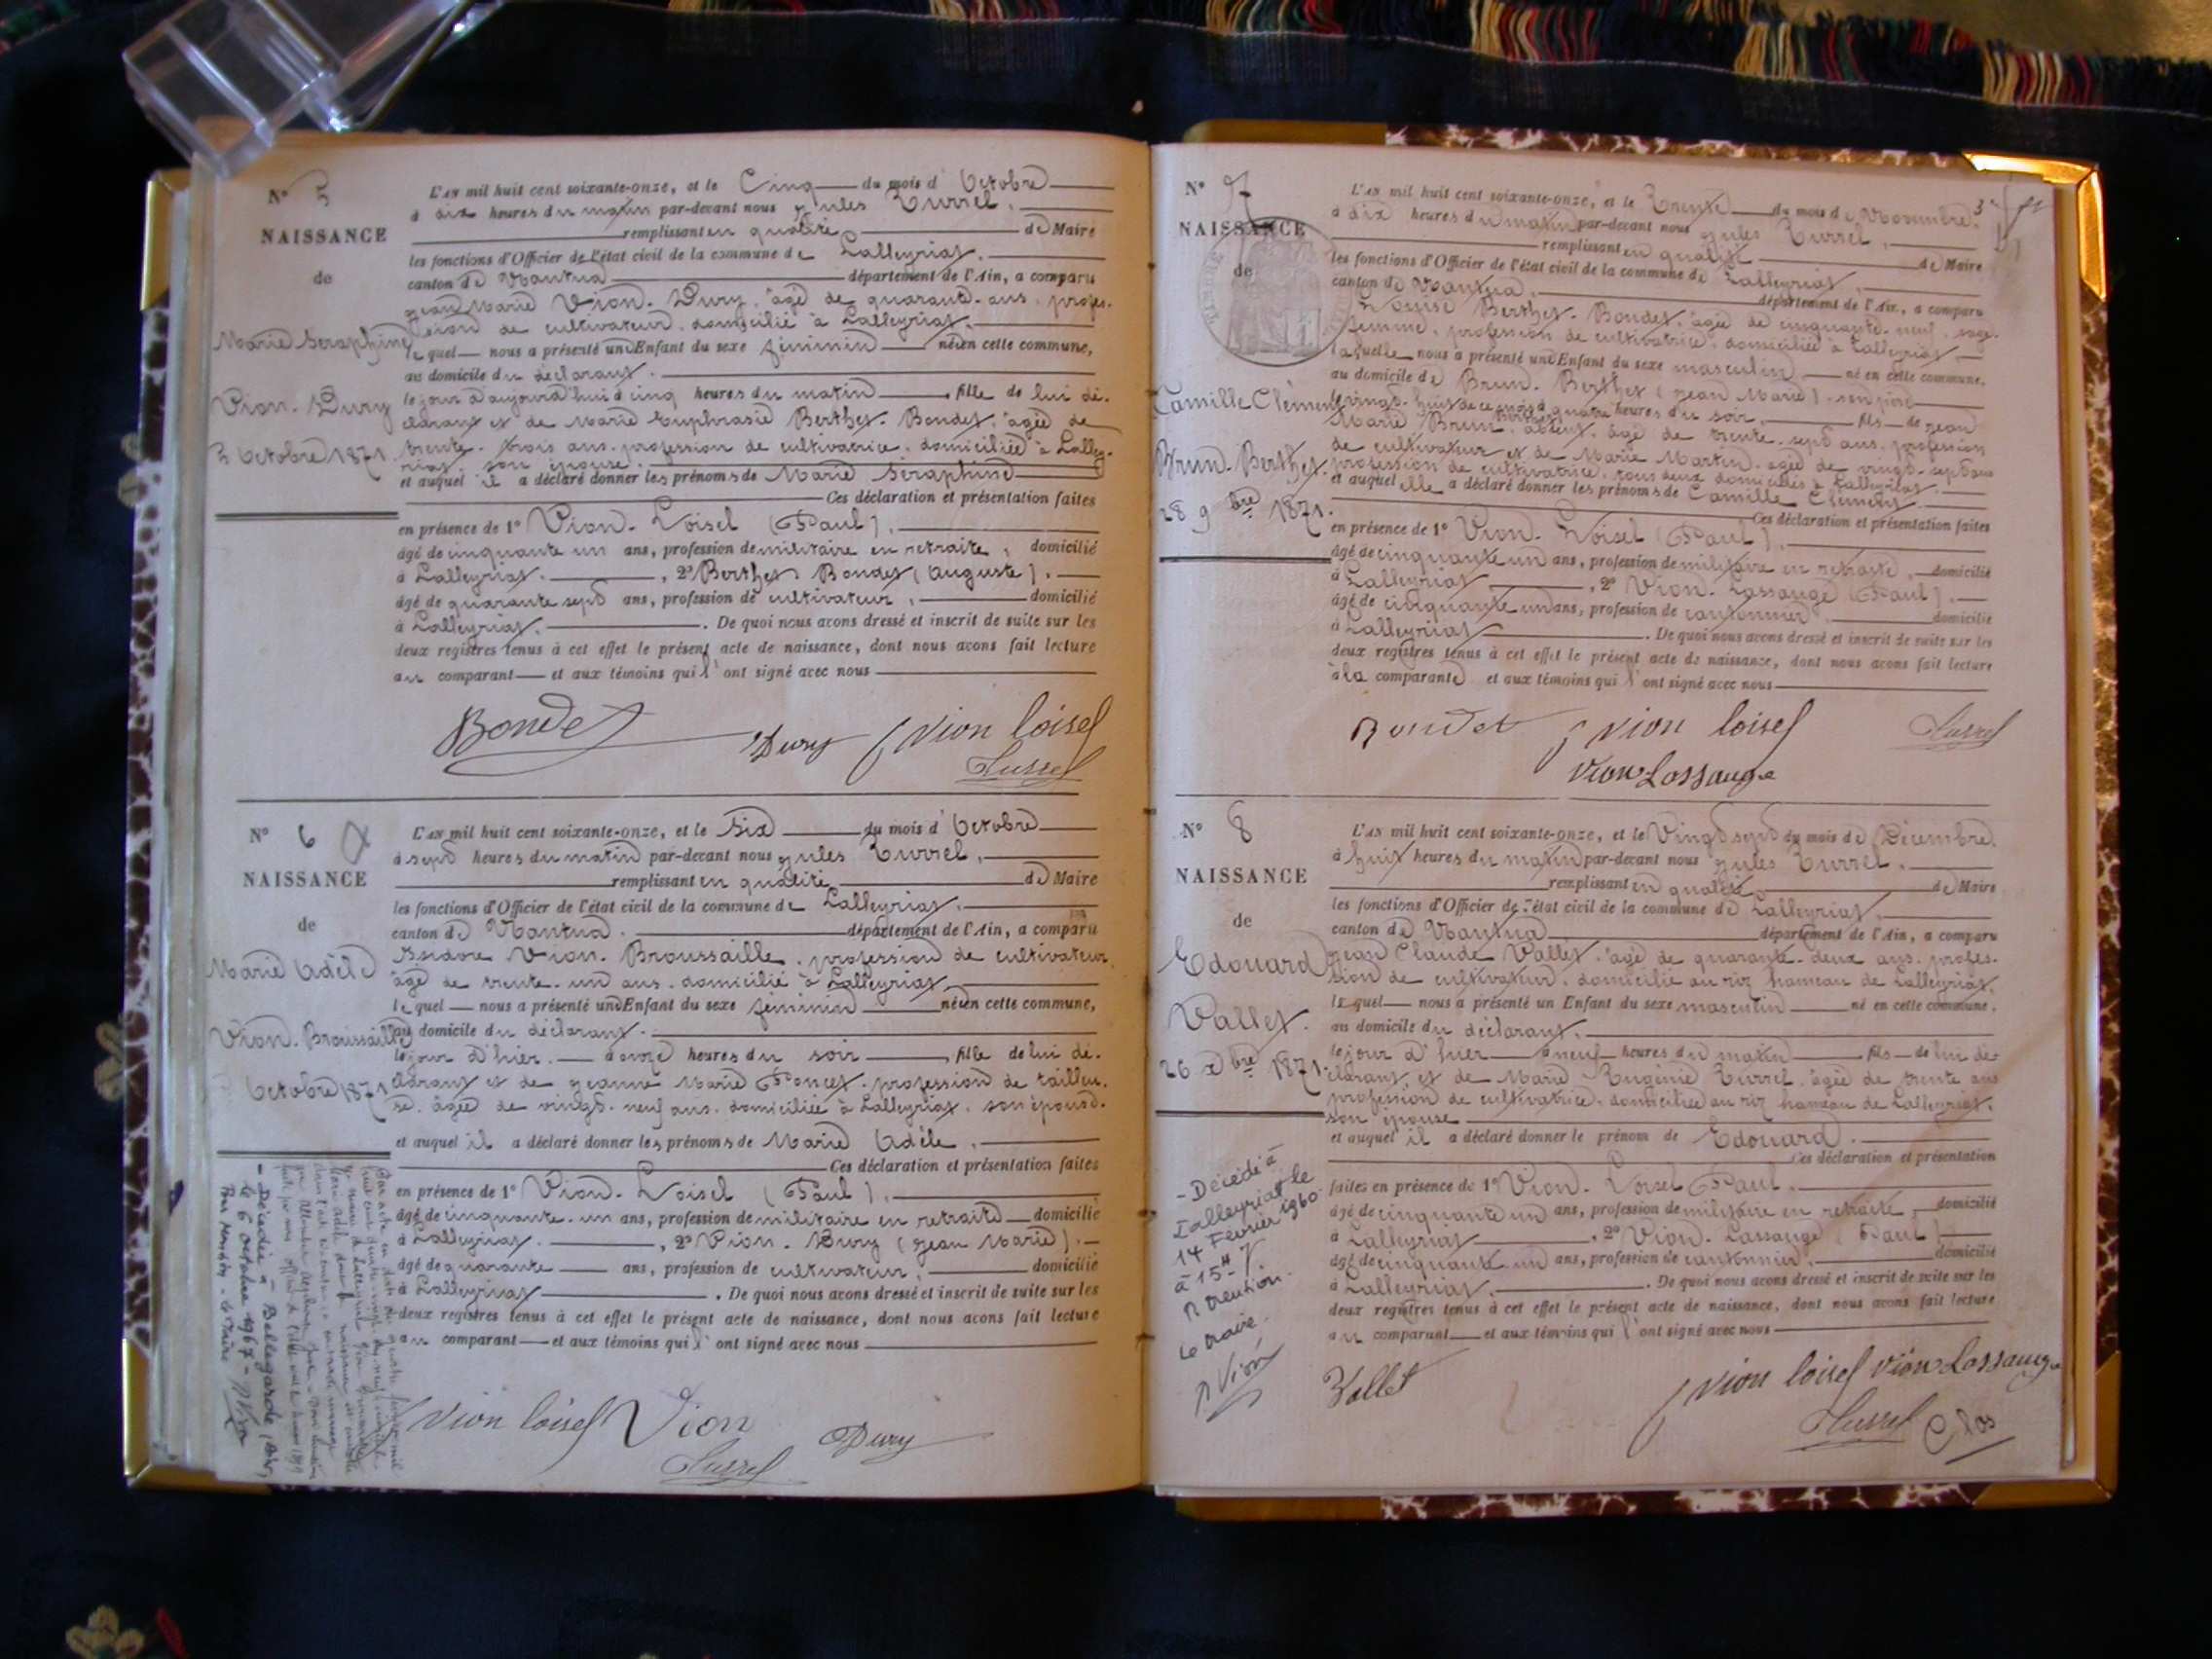 N° 5
NAISSANCE
de
Marie Seraphine
Vion-Dury
5 Octobre 1871.
L'an mil huit cent soixante-onze, et le Cinq du mois d'Octobre
à dix heures du matin par-devant nous Jules Turrel,
remplissant en qualité de Maire
les fonctions d'Officier de l'état civil de la commune de Lalleyriat,
canton de Nantua département de l'Ain, a comparu
Jean Marie Vion-Dury, âgé de quarante ans, profes-
sion de cultivateur, domicilié à Lalleyriat,
lequel nous a présenté un Enfant du sexe féminin née en cette commune,
au domicile du déclarant.
le jour d'aujourd'hui à cinq heures du matin, fille de lui dé-
clarant et de Marie Euphrasie Berthet-Bondet, âgée de
trente-trois ans, profession de cultivatrice, domiciliée à Lalley-
riat, son épouse.
et auquel il a déclaré donner les prénoms de Marie Seraphine
Ces déclaration et présentation faites
en présence de 1° Vion-Loisel (Paul),
âgé de cinquante un ans, profession de militaire en retraite, domicilié
à Lalleyriat, 2° Berthet Bondet (Auguste),
âgé de quarante sept ans, profession de cultivateur, domicilié
à Lalleyriat. De quoi nous avons dressé et inscrit de suite sur les
deux registres tenus à cet effet le présent acte de naissance, dont nous avons fait lecture
au comparant et aux témoins qui l'ont signé avec nous
Bondet Dury Vion loisel
Turrel
N° 6
NAISSANCE
de
Marie Adèle
Vion-Broussaille
Octobre 1871
L'an mil huit cent soixante-onze, et le Six du mois d'Octobre
à sept heures du matin par-devant nous Jules Turrel,
remplissant en qualité de Maire
les fonctions d'Officier de l'état civil de la commune de Lalleyriat,
canton de Nantua. département de l'Ain, a comparu
Isidore Vion-Broussaille, profession de cultivateur,
âgé de trente-un ans, domicilié à Lalleyriat,
lequel nous a présenté un Enfant du sexe féminin née en cette commune,
au domicile du déclarant.
le jour d'hier, à onze heures du soir, fille de lui dé-
clarant et de Jeanne Marie Poncet, profession de tailleu-
se, âgée de vingt-neuf ans, domiciliée à Lalleyriat, son épouse.
et auquel il a déclaré donner les prénoms de Marie Adèle.
Ces déclaration et présentation faites
en présence de 1° Vion-Loisel (Paul),
âgé de cinquante-un ans, profession de militaire en retraite domicilié
à Lalleyriat, 2° Vion-Dury (Jean Marie),
âgé de quarante ans, profession de cultivateur, domicilié
à Lalleyriat. De quoi nous avons dressé et inscrit de suite sur les
deux registres tenus à cet effet le présent acte de naissance, dont nous avons fait lecture
au comparant et aux témoins qui l'ont signé avec nous
- Décédée à Bellegarde (Ain)
le 6 octobre 1967 -
Pour mention - le Maire
Vion loisel Vion Dury
Turrel
N° 7
NAISSANCE
de
Camille Clément
Brun-Berthet.
28 9bre 1871.
L'an mil huit cent soixante-onze, et le Trente du mois de Novembre
à dix heures du matin par-devant nous Jules Turrel,
remplissant en qualité de Maire
les fonctions d'Officier de l'état civil de la commune de Lalleyriat,
canton de Nantua, département de l'Ain, a comparu
Louise Berthet-Bondet, âgée de cinquante-neuf, sage-
femme, profession de cultivatrice, domiciliée à Lalleyriat
laquelle nous a présenté un Enfant du sexe masculin né en cette commune,
au domicile de Brun-Berthet (Jean Marie), son père
le vingt-huit de ce mois à quatre heures du soir, fils de Jean
Marie Brun-Berthet, absent, âgé de trente-sept ans, profession
de cultivateur et de Marie Martin, âgée de vingt-sept ans
profession de cultivatrice, tous deux domiciliés à Lalleyriat.
et auquel elle a déclaré donner les prénoms de Camille Clément.
Ces déclaration et présentation faites
en présence de 1° Vion-Loisel (Paul),
âgé de cinquante un ans, profession de militaire en retraite, domicilié
à Lalleyriat, 2° Vion-Lassauge (Paul),
âgé de cinquante un ans, profession de cantonnier, domicilié
à Lalleyriat. De quoi nous avons dressé et inscrit de suite sur les
deux registres tenus à cet effet le présent acte de naissance, dont nous avons fait lecture
à la comparante et aux témoins qui l'ont signé avec nous
Bondet Vion loisel Turrel
Vion Lassauge
N° 8
NAISSANCE
de
Edouard
Vallet.
26 xbre 1871.
L'an mil huit cent soixante-onze, et le Vingt sept du mois de Décembre,
à huit heures du matin par-devant nous Jules Turrel,
remplissant en qualité de Maire
les fonctions d'Officier de l'état civil de la commune de Lalleyriat,
canton de Nantua département de l'Ain, a comparu
Jean Claude Vallet, âgé de quarante-deux ans, profes-
sion de cultivateur, domicilié au riz hameau de Lalleyriat,
lequel nous a présenté un Enfant du sexe masculin né en cette commune,
au domicile du déclarant.
le jour d'hier à neuf heures du matin fils de lui dé-
clarant, et de Marie Eugénie Turrel, âgée de trente ans
profession de cultivatrice, domiciliée au riz hameau de Lalleyriat,
son épouse
et auquel il a déclaré donner le prénom de Edouard.
Ces déclaration et présentation
faites en présence de 1° Vion-Loisel Paul,
âgé de cinquante un ans, profession de militaire en retraite, domicilié
à Lalleyriat, 2° Vion-Lassauge (Paul)
âgé de cinquante un ans, profession de cantonnier, domicilié
à Lalleyriat. De quoi nous avons dressé et inscrit de suite sur les
deux registres tenus à cet effet le présent acte de naissance, dont nous avons fait lecture
au comparant et aux témoins qui l'ont signé avec nous
- Décédé à
Lalleyriat le
14 Février 1960
à 15H
P. mention.
Le Maire.
Vion
Vallet Vion loisel Vion Lassauge
Turrel Clos